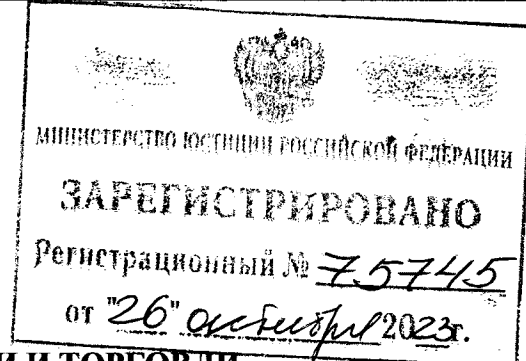 МИНИСТЕРСТВО ЮСТИЦИИ РОССИЙСКОЙ ФЕДЕРАЦИИ
ЗАРЕГИСТРИРОВАНО
Регистрационный № 75745
от "26" октября 2023г.
И ТОРГОВЛИ